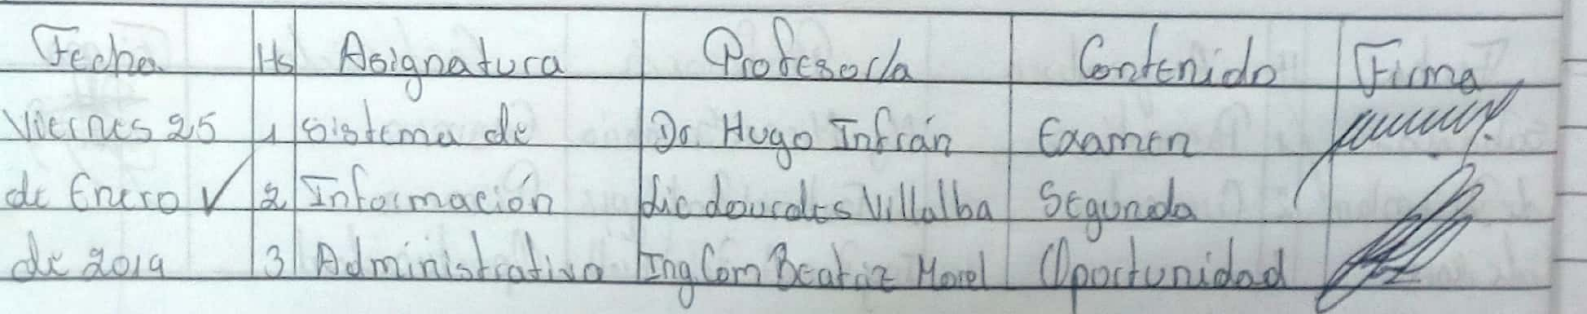 Fecha Hs Asignatura Profesor/a Contenido Firma
Viernes 25 1 Sistema de Dr Hugo Infrán Examen
de Enero ✓ 2 Información Lic Lourdes Villalba Segunda
de 2019 3 Administrativa Ing Com Beatriz Morel Oportunidad